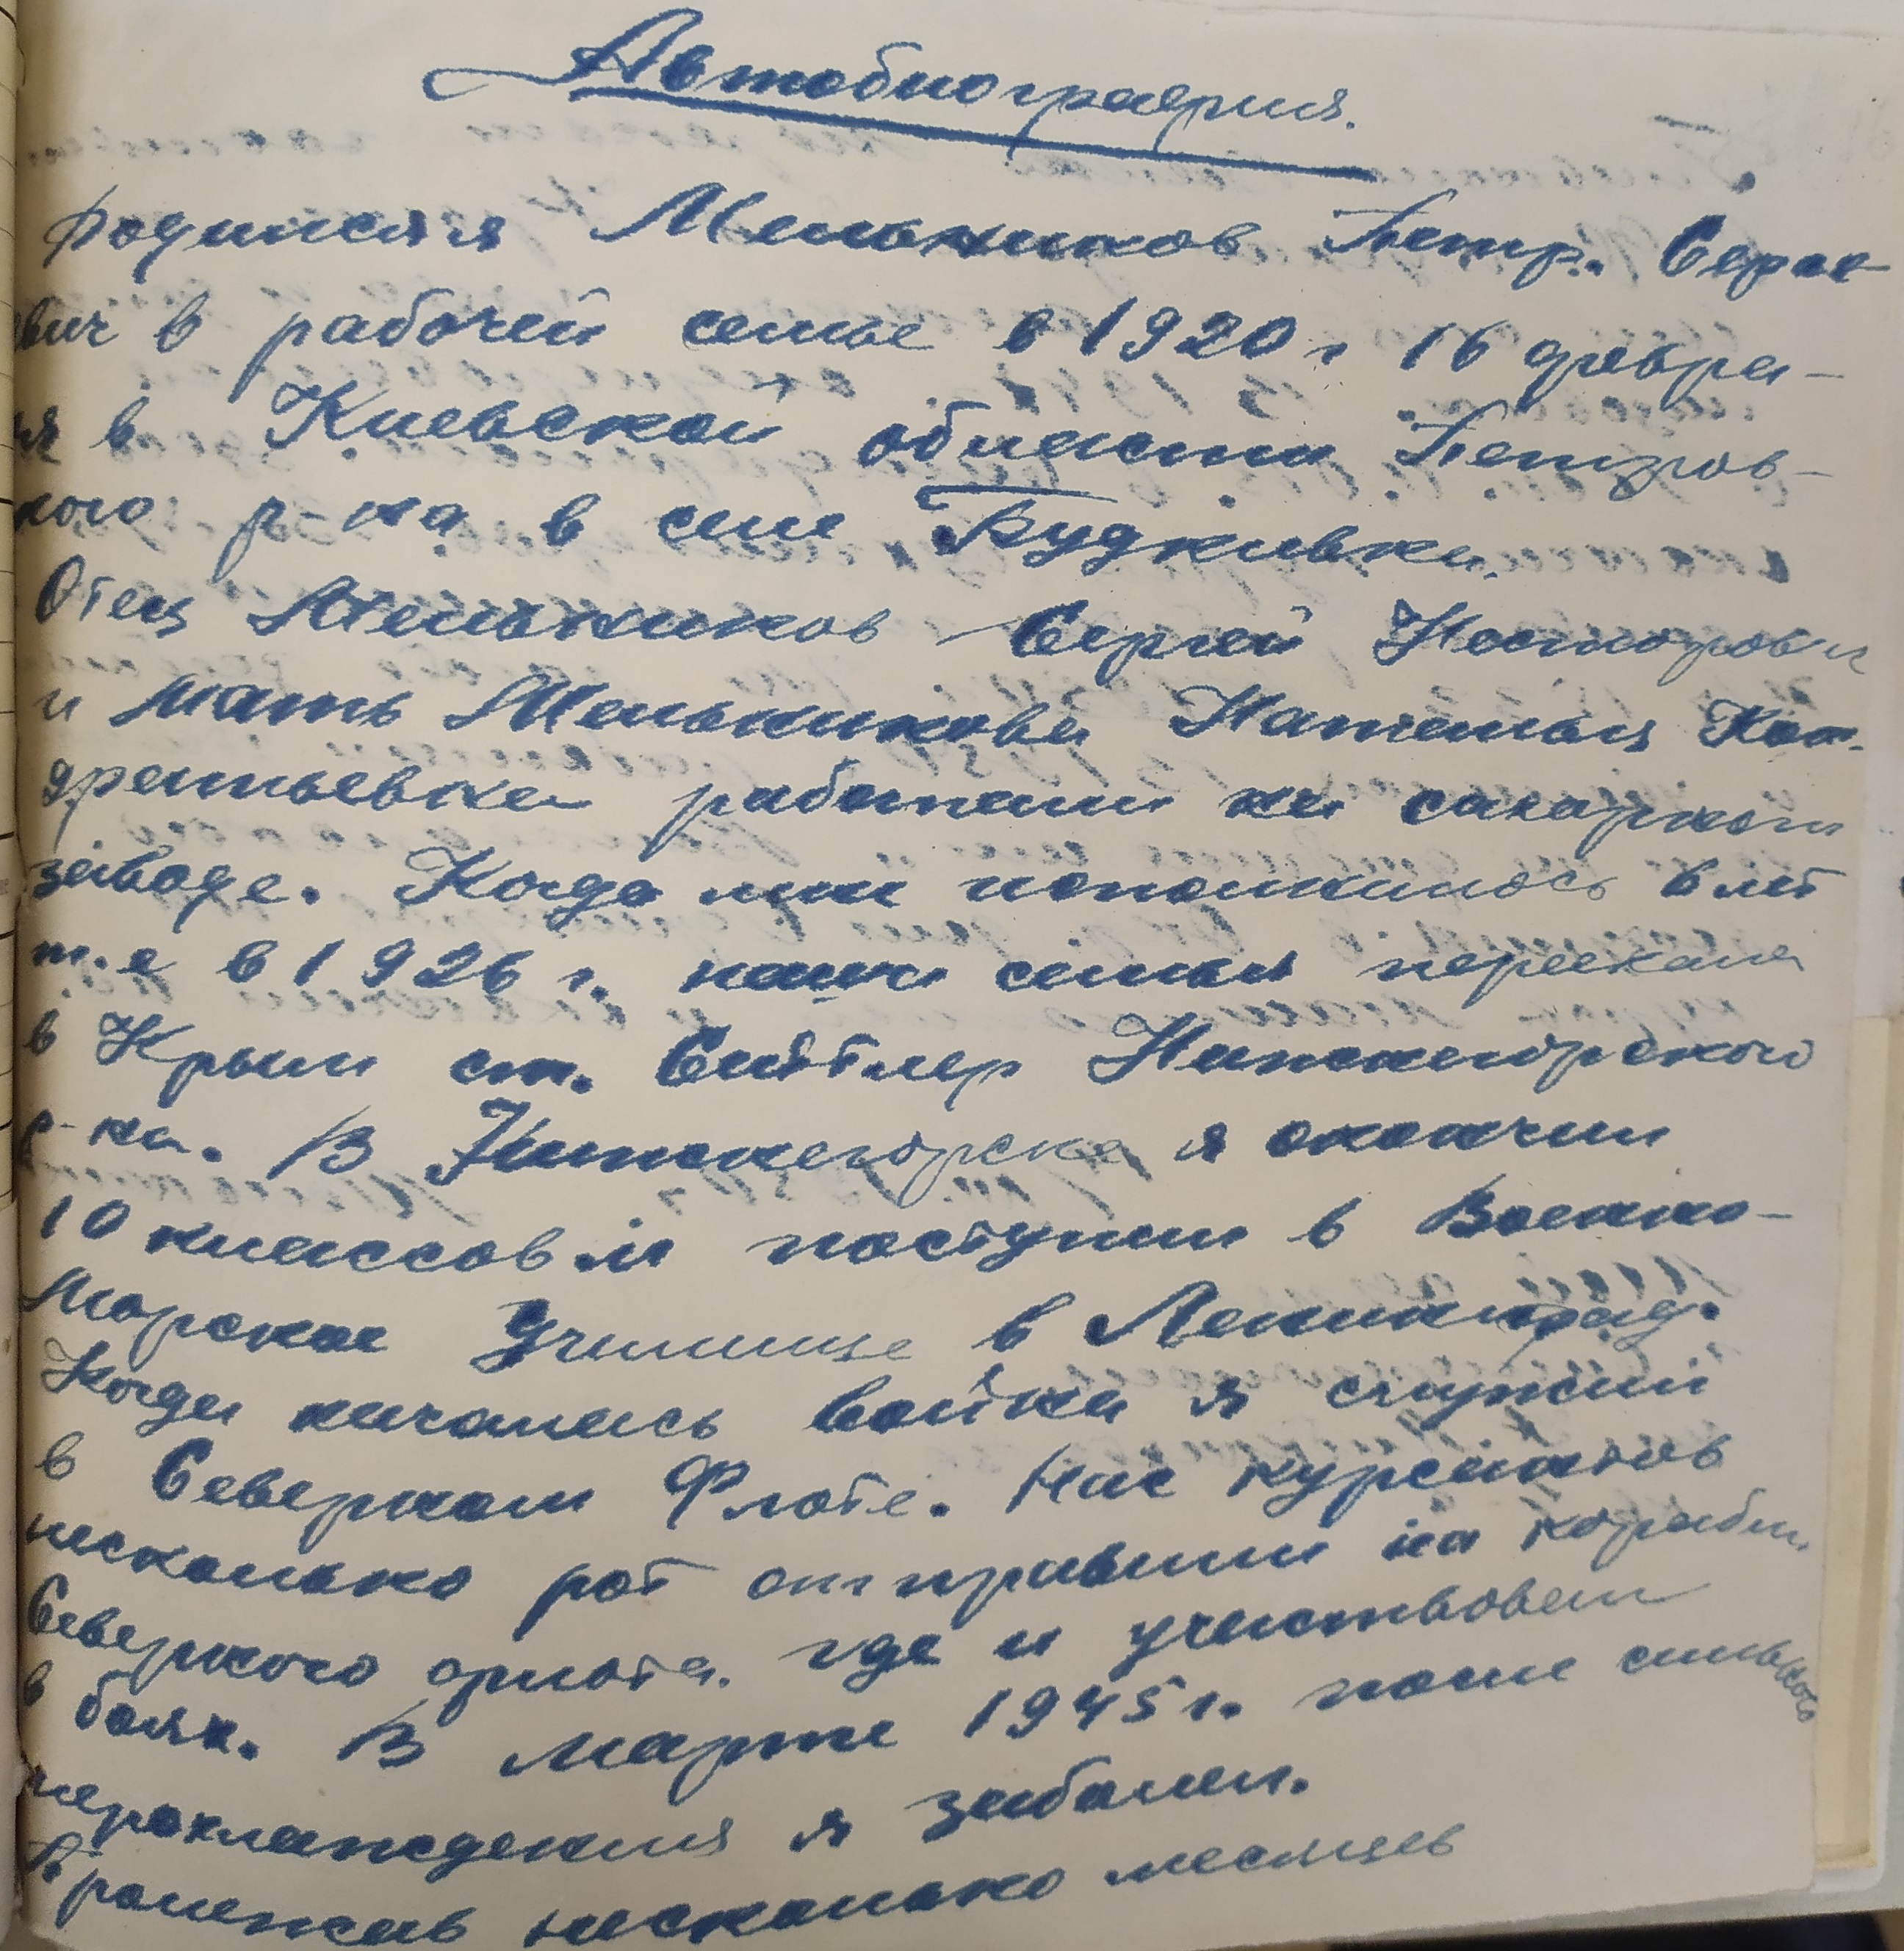 Автобиография.
Родился я Мельников Петр. Серге-
евич в рабочей семье в 1920 г 16 февра-
ля в Киевской области Петров-
кого р-на в селе Будкивка.
Отец Мельников Сергей Несторович
и мать Мельникова Наталья Кон-
дратьевна работали на сахарном
заводе. Когда мне исполнилось 6 лет
т.е в 1926 г. наша семья переехала
в Крым ст. Сейтлер Нижнегорского
р-на. В Нижнегорске я окончил
10 классов и поступил в Военно-
Морское Училище в Ленинград.
Когда началась война я служил
в Северном Флоте. Нас курсантов
несколько рот отправили на корабли
Северного флота. где и участвовал
в боях. В марте 1945 г. после сильного
переохлаждения я заболел.
Пролежав несколько месяцев